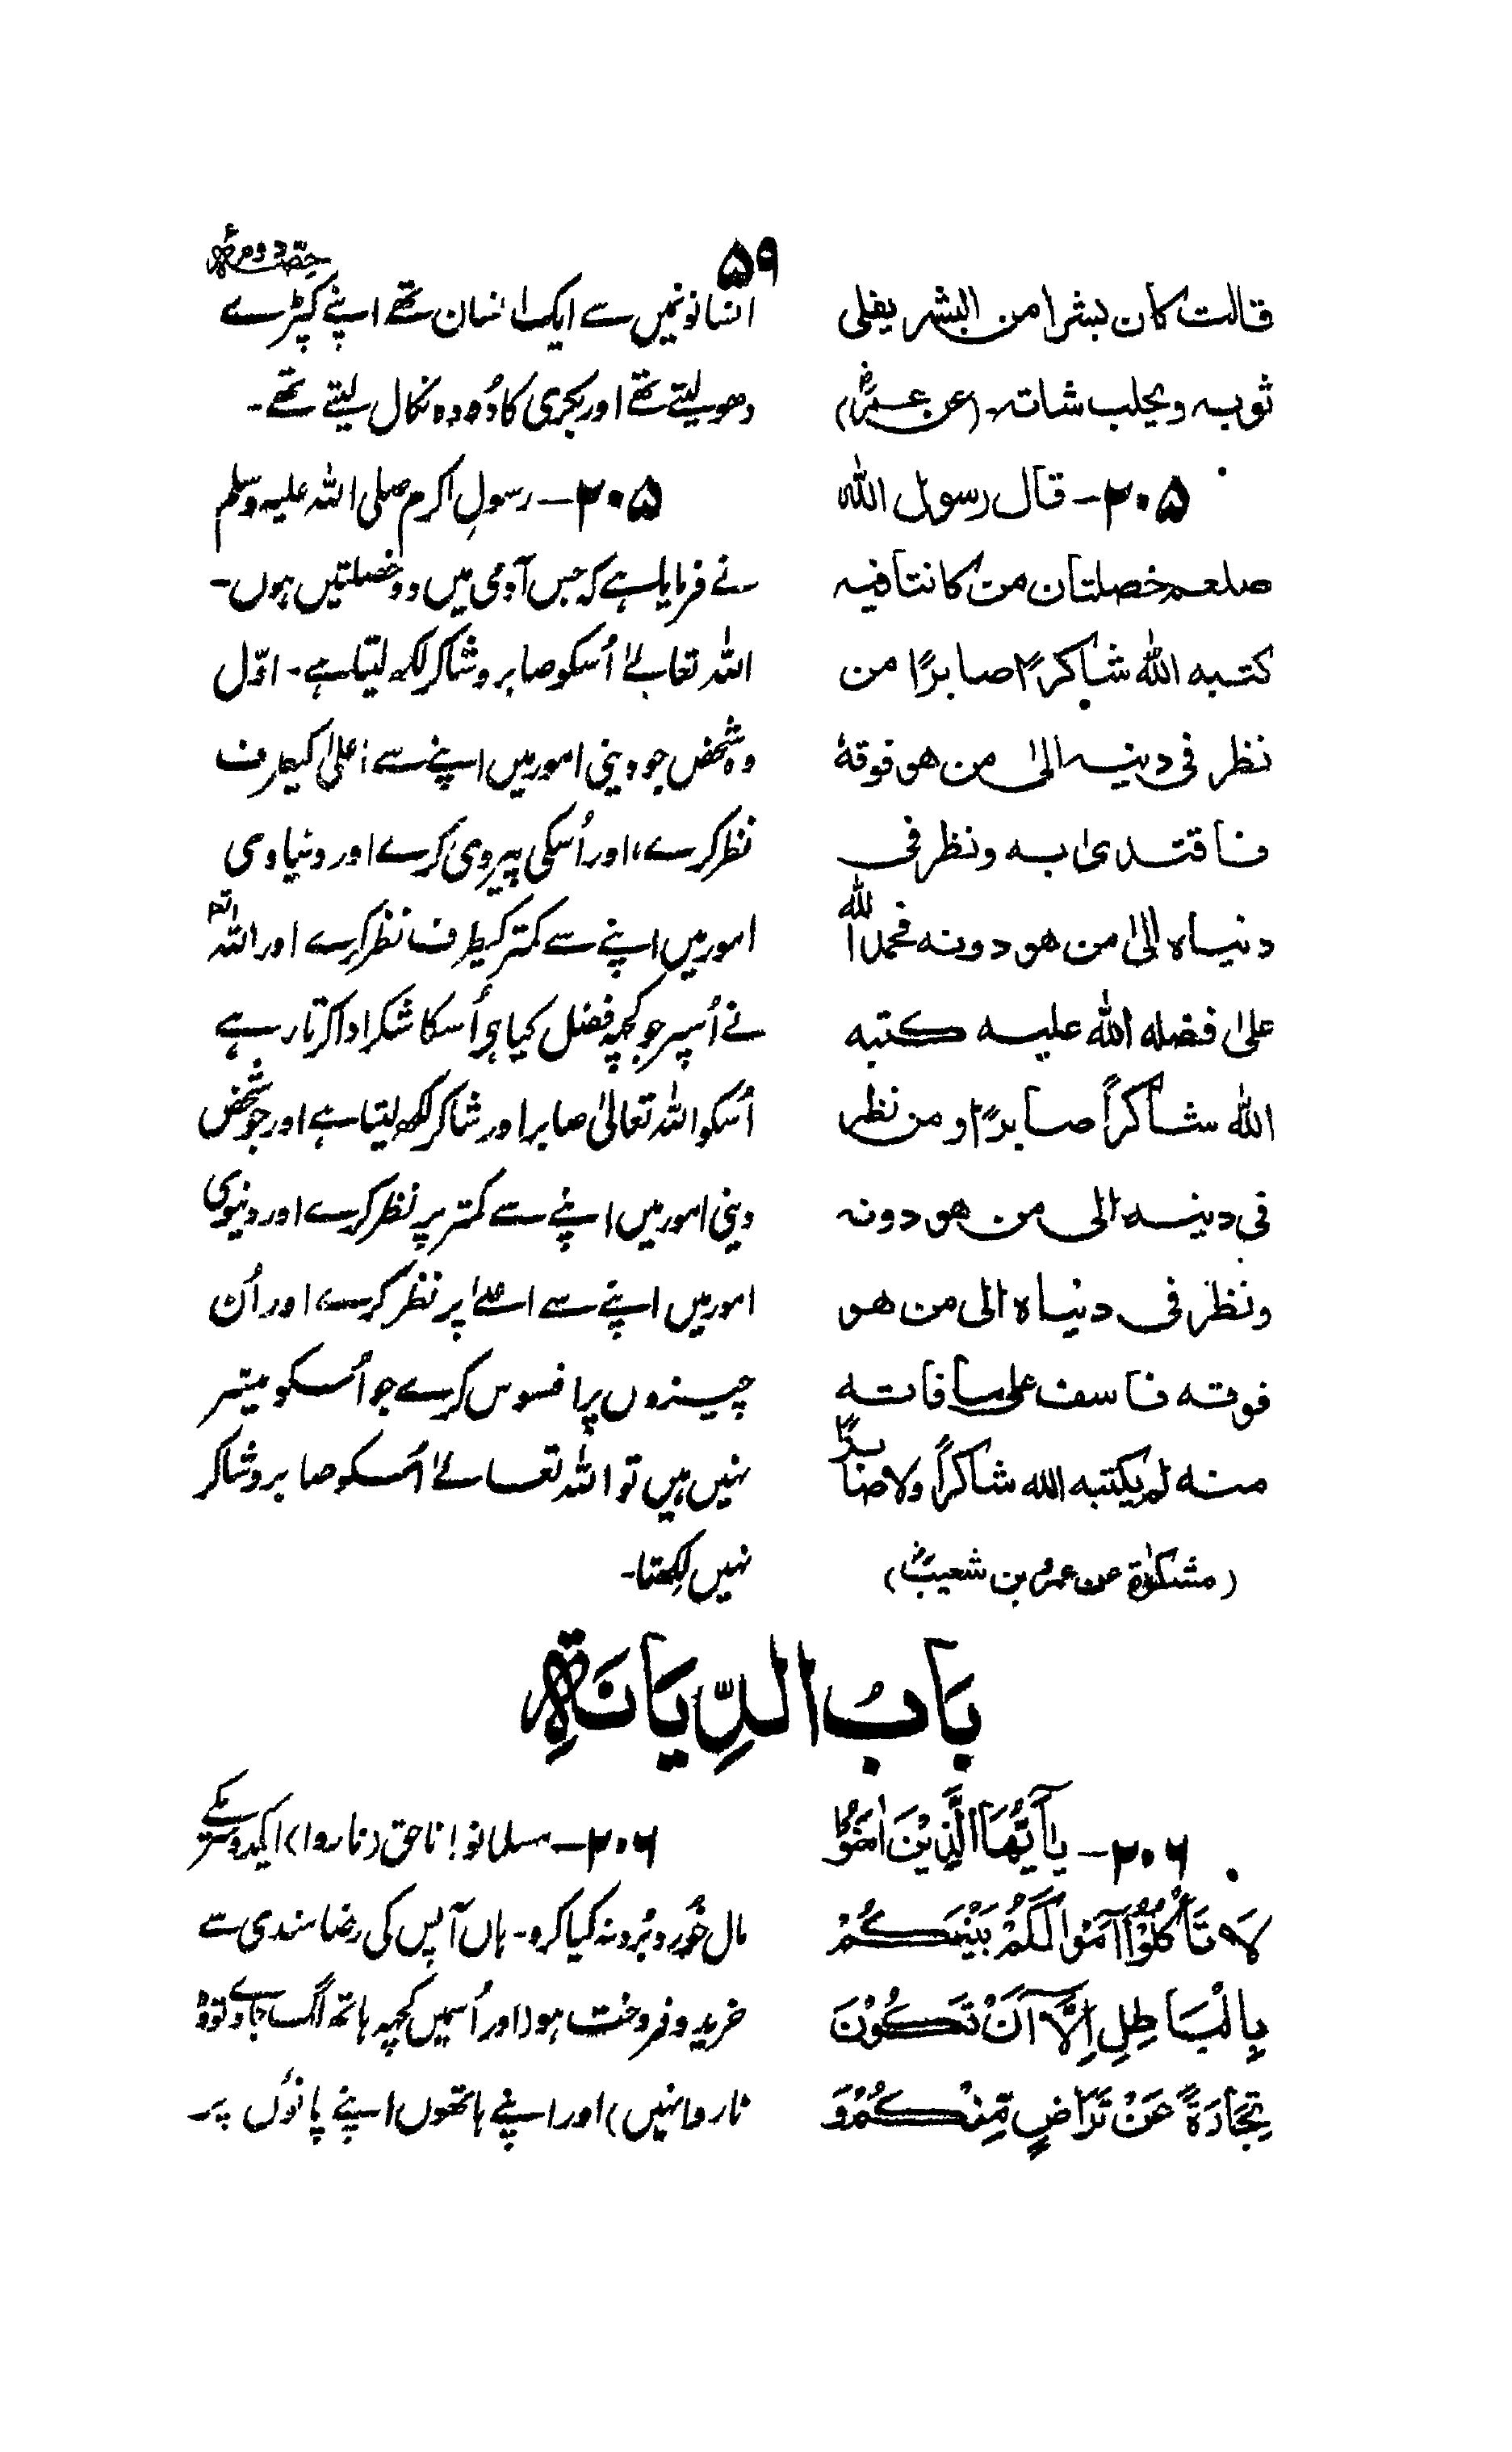 ۵۹
حصہ دوم
قالت کان بشرا من البشر یفلی
ثوبہ ویحلب شاتہ۔ (عن عمرؓ)
۲۰۵ – قال رسول اللہ
صلعم خصلتان من کانتا فیہ
کتبه اللہ شاکرًا صابرًا من
نظر فی دینہ الیٰ من هو فوقهٗ
فاقتدیٰ به ونظر فی
دنیاہ الیٰ من هو دونه فحمد اللہ
علیٰ فضله اللہ علیه کتبه
اللہ شاکراً صابرًا ومن نظر
فی دینه الی من هو دونه
ونظر فی دنیاہ الی من هو
فوقه فاسف علی ما فاته
منه لم یکتبه اللہ شاکراً ولا صابرًا
(مشکوٰۃ عن عمرو بن شعیبؓ)
انسانونمیں سے ایک انسان تھے اپنے کپڑے
دھو لیتے تھے اور بکری کا دُودہ نکال لیتے تھے۔
۲۰۵ – رسولِ اکرم صلی اللہ علیہ وسلم
نے فرمایا ہے کہ جس آدمی میں دو خصلتیں ہوں۔
اللہ تعالےٰ اُسکو صابر و شاکر لکھ لیتا ہے۔ اوّل
وہ شخص جو دینی امور میں اپنے سے اعلیٰ کیطرف
نظر کرے، اور اُسکی پیروی کرے اور دنیاوی
امور میں اپنے سے کمتر کیطرف نظر کرے اور اللہ تعہ
نے اُسپر جو کچھ فضل کیا ہو اُسکا شکر ادا کرتا رہے
اُسکو اللہ تعالیٰ صابر اور شاکر لکھ لیتا ہے اور جو شخص
دینی امور میں اپنے سے کمتر پر نظر کرے اور دنیوی
امور میں اپنے سے اعلےٰ پر نظر کرے اور اُن
چیزوں پر افسوس کرے جو اُسکو میسّر
نہیں ہیں تو اللہ تعالےٰ اُسکو صابر و شاکر
نہیں لکھتا۔
بَابُ الدِّیَانَةِ
۲۰۶ – یٰۤاَیُّهَا الَّذِیْنَ اٰمَنُوْا
لَا تَاْكُلُوْۤا اَمْوَالَكُمْ بَیْنَكُمْ
بِالْبَاطِلِ اِلَّاۤ اَنْ تَكُوْنَ
تِجَارَةً عَنْ تَرَاضٍ مِّنْكُمْ وَ
۲۰۶ – مسلمانو! ناحق (ناروا) ایکدوسرے کے
مال خُورد و بُرد نہ کیا کرو۔ ہاں آپس کی رضامندی سے
خرید و فروخت ہو (اور اُسمیں کچھہ ہاتھ لگ جاوے تو وہ
ناروا نہیں) اور اپنے ہاتھوں اپنے پانوں پر